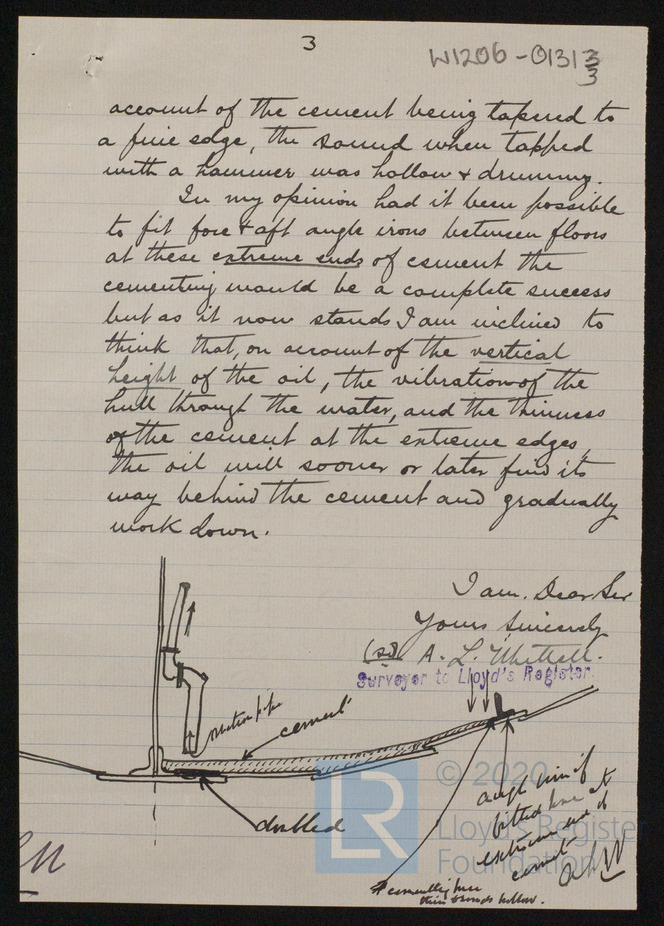 3
W1206-0131 3
3
account of the cement being tapered to
a fine edge, the sound when tapped
with a hammer was hollow & drummy.
In my opinion had it been possible
to fit fore & aft angle irons between floors
at these extreme ends of cement the
cementing would be a complete success
but as it now stands I am inclined to
think that, on account of the vertical
height of the oil, the vibration of the
hull through the water, and the thinness
of the cement at the extreme edges,
the oil will sooner or later find its
way behind the cement and gradually
work down.
I am, Dear Sir
Yours Sincerely
(sd) A. L.
Surveyor to Lloyd's Register.
suction pipe
cement
doubled
angle iron if
fitted here at
extreme end of
cement
cementing here
thin sounds hollow.
© 2020
Lloyd's Register
Foundation
LR